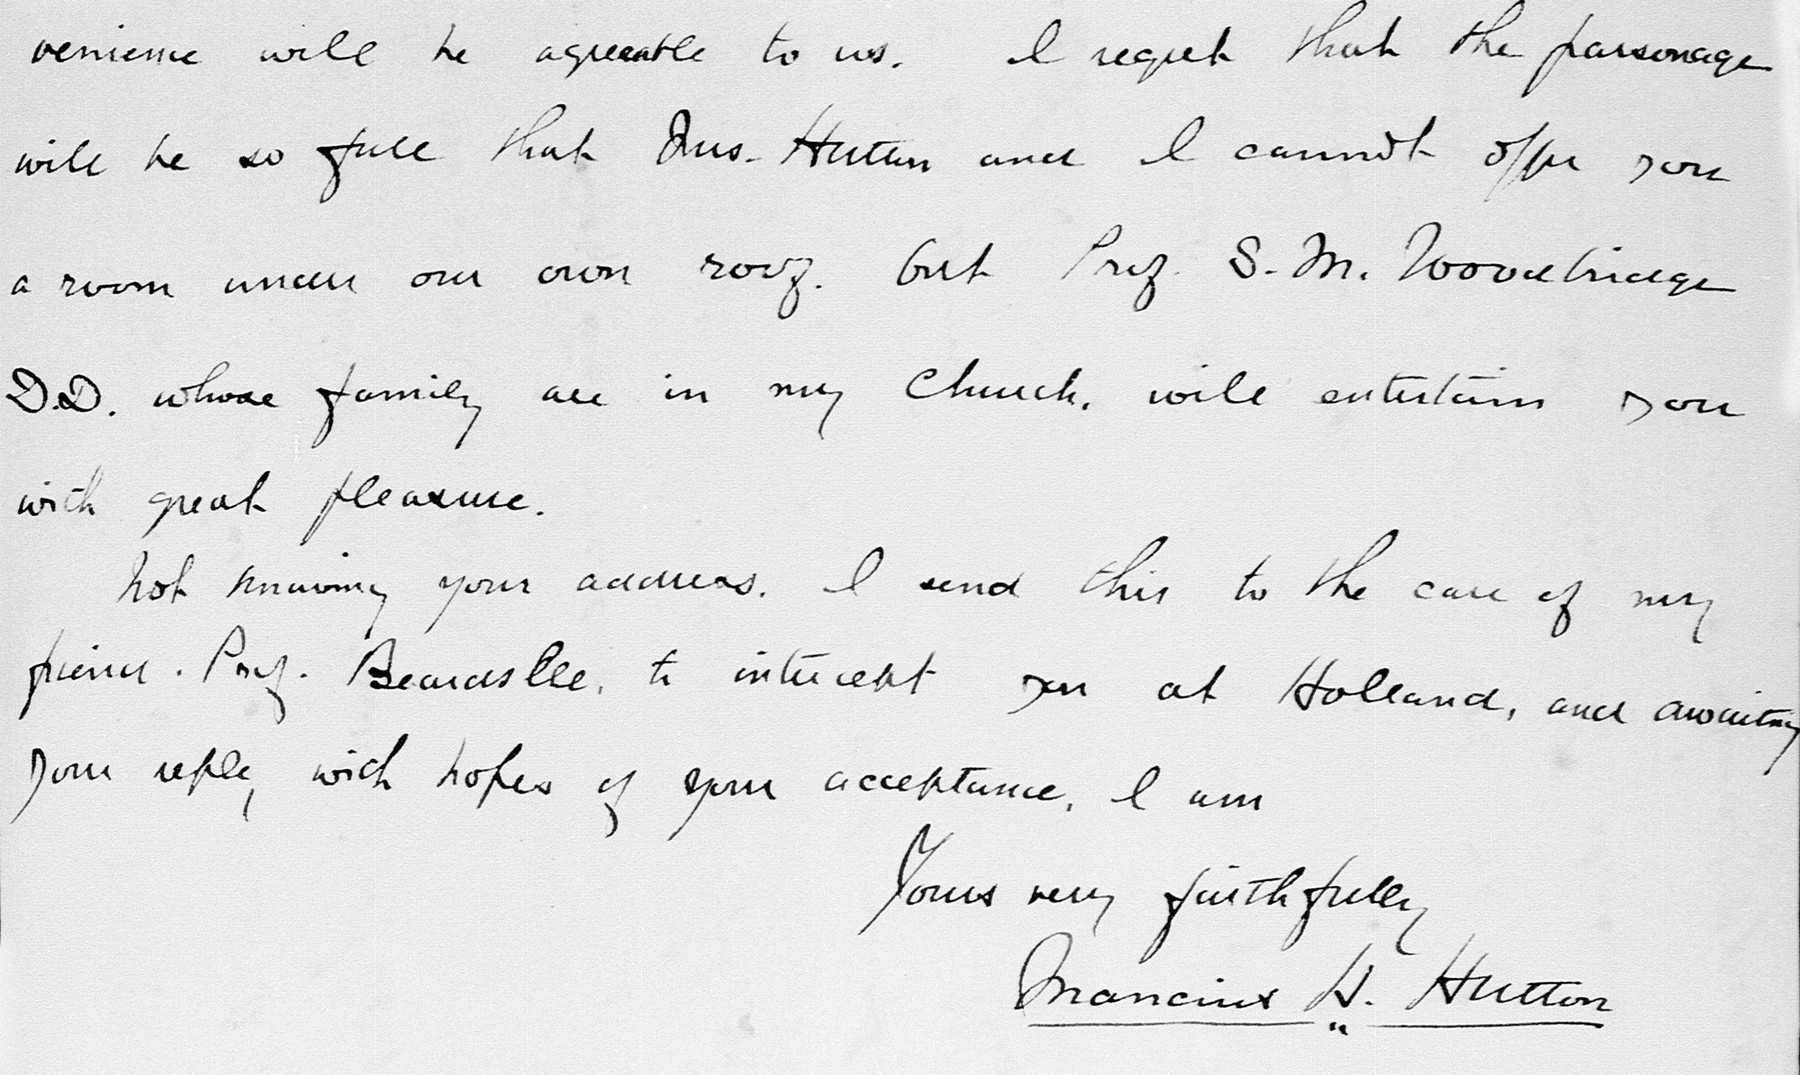 venience will be agreeable to us. I regret that the parsonage
will be so full that Mrs. Hutton and I cannot offer you
a room under our own roof. but Prof. S. M. Woodbridge
D.D. whose family are in my Church, will entertain you
with great pleasure.
Not knowing your address. I send this to the care of my
friend. Prof. Beardslee, to intercept you at Holland, and awaiting
your reply, with hopes of your acceptance, I am
Yours very faithfully
Mancius H. Hutton